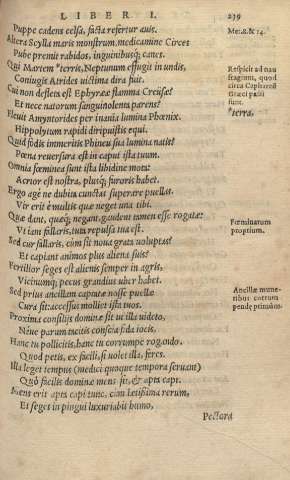 LIBER I.
239
Puppe cadens celsa, facta refertur auis.
Altera Scylla maris monstrum, medicamine Circes
Pube premit rabidos, inguinibusq; canes.
Qui Martem *terris, Neptunum effugit in undis,
Coniugis Atrides uictima dira fuit.
Cui non defleta est Ephyrææ flamma Creusæ?
Et nece natorum sanguinolenta parens?
Fleuit Amyntorides per inania lumina Phœnix.
Hippolytum rapidi diripuistis equi.
Quid fodis immeritis Phineu sua lumina natis?
Pœna reuersura est in caput ista tuum.
Omnia fœminea sunt ista libidine mota:
Acrior est nostra, plusq; furoris habet.
Ergo age ne dubita cunctas superare puellas.
Vix erit è multis quæ neget una tibi.
Quæ dant, quæq; negant, gaudent tamen esse rogatæ:
Vt iam fallaris, tuta repulsa tua est.
Sed cur fallaris, cum sit noua grata uoluptas?
Et capiant animos plus aliena suis?
Fertilior seges est alienis semper in agris,
Vicinumq; pecus grandius uber habet.
Sed prius ancillam captatæ nosse puellæ
Cura sit: accessus molliet illa tuos.
Proxima consilijs dominæ sit ut illa uideto,
Néue parum tacitis conscia fida iocis.
Hanc tu pollicitis, hanc tu corrumpe rogando.
Quod petis, ex facili, si uolet illa, feres.
Illa leget tempus (medici quoque tempora seruant)
Quò facilis dominæ mens sit, & apta capi.
Mens erit apta capi tunc, cum lætissima rerum,
Et seges in pingui luxuriabit humo,
Pectora
Met. 8. & 14.
Respicit ad nau
fragium, quod
circa Caphareã
Græci passi
sunt.
*terra,
Fœminarum
proprium.
Ancillæ mune-
ribus corrum
pendę primùm.